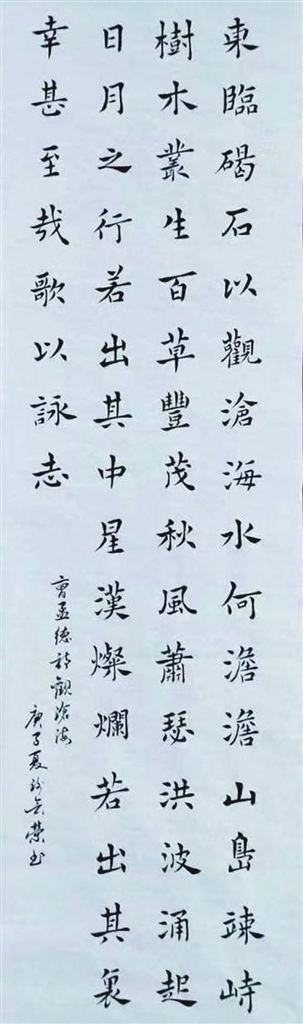 東臨碣石以觀滄海水何澹澹山島竦峙
樹木叢生百草豐茂秋風蕭瑟洪波涌起
日月之行若出其中星漢燦爛若出其裏
幸甚至哉歌以詠志
曹孟德詩觀滄海
庚子夏榮書